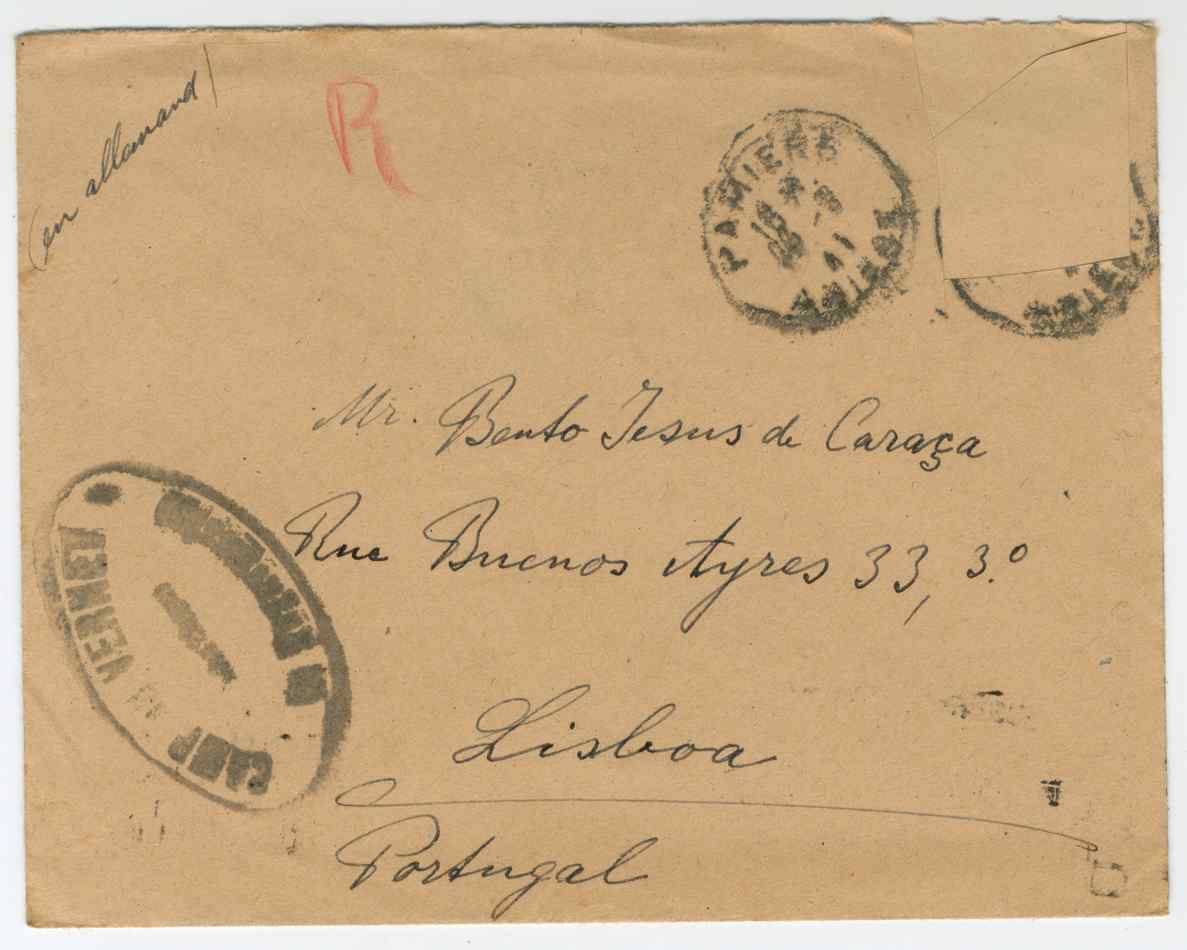 (en allemand)
R
PAMIERS
ARIEGE
ARIEGE
Mr. Bento Jesus de Caraça
Rue Buenos Ayres 33, 3.º
Lisboa
Portugal
CAMP DU VERNET